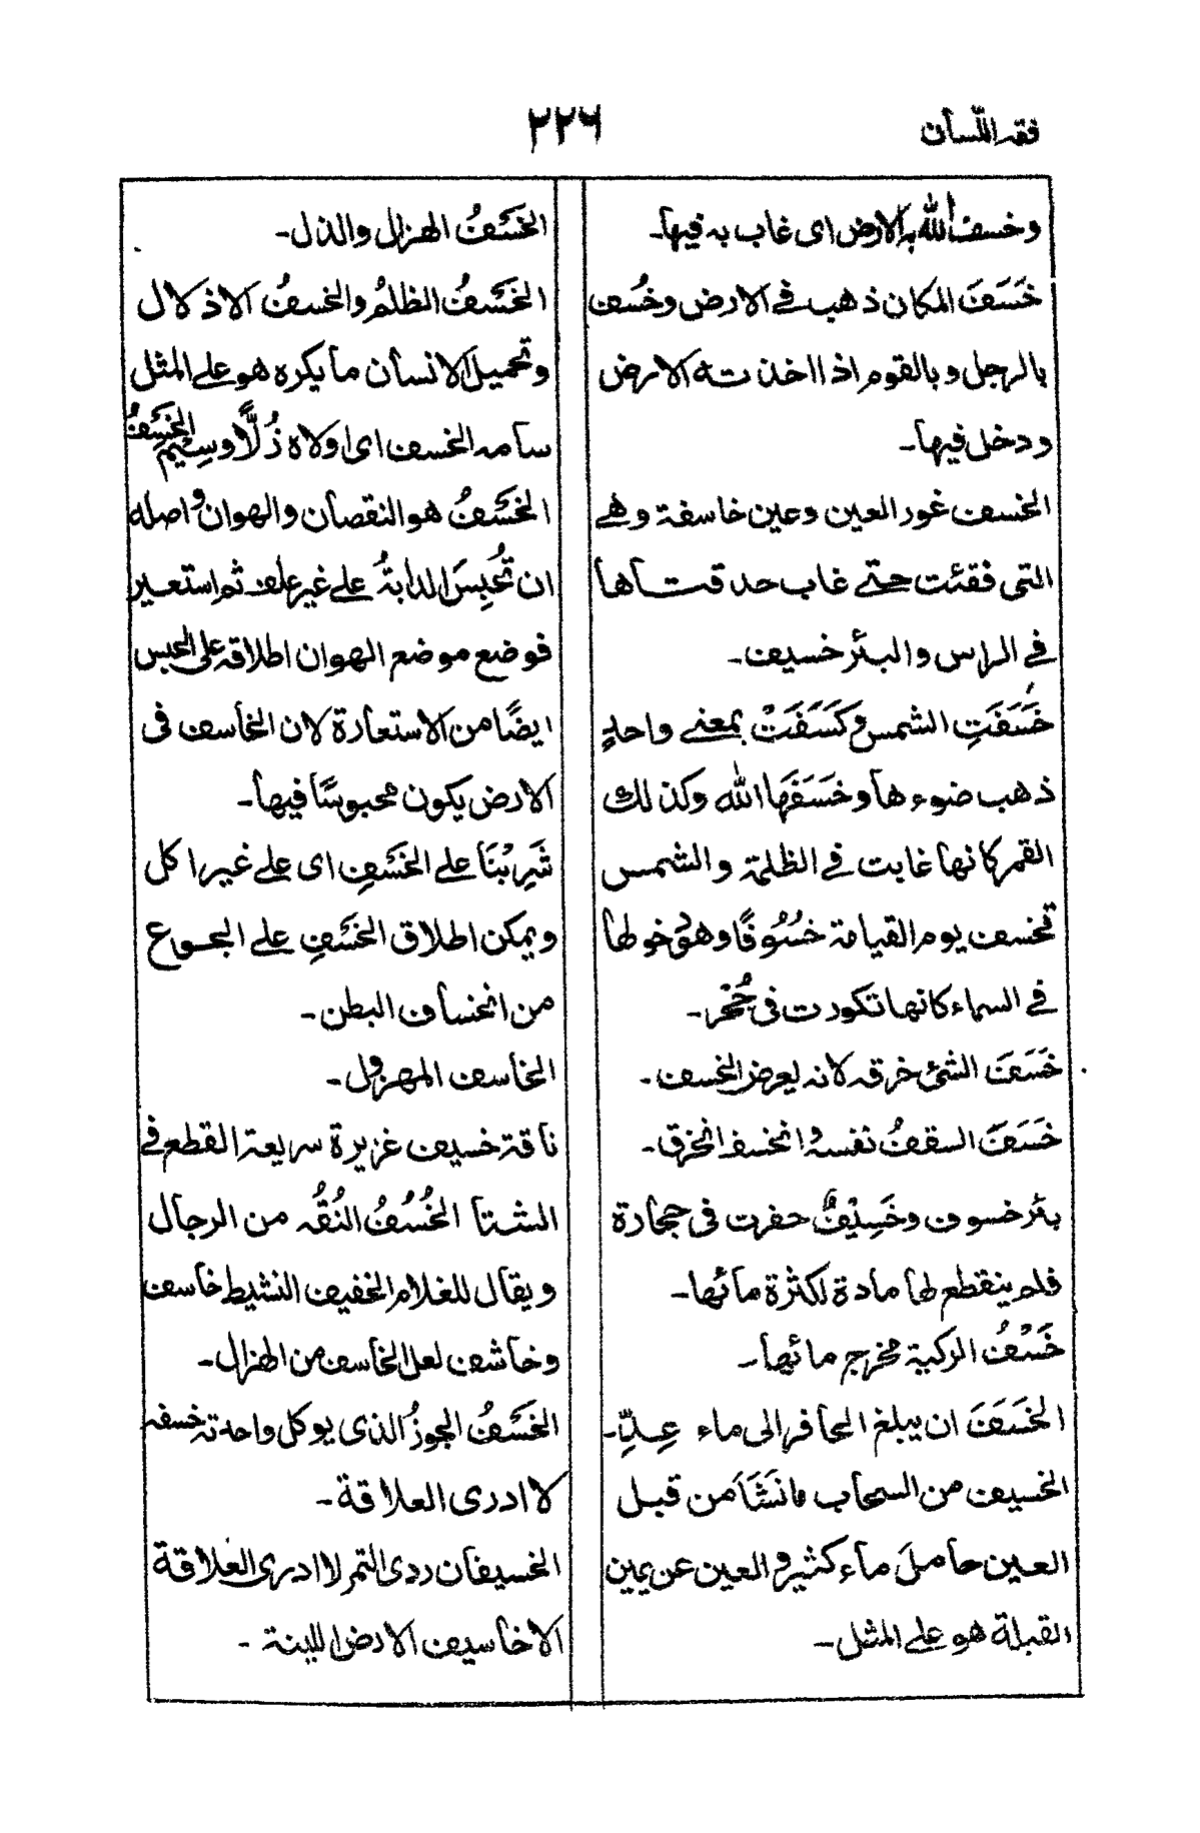 فقه اللّسان
٢٢٦
وخسف الله به الارض اى غاب به فيها۔
خَسَفَ المكان ذهب فے الارض وخُسف
بالرجل وبالقوم اذا اخذته الارض
ودخل فيها۔
الخسف غور العين وعين خاسفة وهے
التى فقئت حتے غاب حدقتاها
فے الراس والبئر خسيف۔
خَسَفَتِ الشمس وكَسَفَتْ بمعنے واحدٍ
ذهب ضوءها وخَسَفَهَا الله وكذلك
القمر كانها غابت فے الظلمة والشمس
تخسف يوم القيامة خُسُوفًا وهو دخولها
فے السماء كانها تكورت فى جُحْر۔
خَسَفَ الشئ خرقه لانه يعرض الخسف۔
خَسَفَ السقفُ نفسه وانخسف انخرق۔
بئر خسوف وخَسِيْفٌ حفرت فى حجارة
فلم ينقطع لها مادة لكثرة مائها۔
خَسْفُ الركية مخرج مائها۔
الخَسَفَ ان يبلغ الحافر الى ماء عِدٍّ۔
الخسيف من السحاب ما نَشَأَ من قبل
العين حاملَ ماء كثير والعين عن يمين
القبلة هو علے المثل۔
الخَسَفُ الهزال والذل۔
الخَسَفُ الظلمُ والخسفُ الاذلال
وتحميل الانسان ما يكره هو علے المثل
سامه الخسف اى اولاه ذُلًّا وسِيْمَ الخَسِفُ
الخَسَفُ هو النقصان والهوان واصله
ان تُحبِسَ الدابةُ علے غير علف ثم استعير
فوضع موضع الهوان اطلاقه على الحبس
ايضًا من الاستعارة لان الخاسف فى
الارض يكون محبوسًا فيها۔
شَرِبْنَا علے الخَسَفِ اى علے غير اكل
ويمكن اطلاق الخَسَفِ علے الجوع
من انخساف البطن۔
الخاسف المهزول۔
ناقة خسيف غزيرة سريعة القطع فے
الشتا الخُسُفُ النُقُه من الرجال
ويقال للغلام الخفيف النشيط خاسف
وخاشف لعل الخاسف من الهزال۔
الخَسَفُ الجوزُ الذى يوكل واحدته خسفه
لا ادرى العلاقة۔
الخسيفان ردى التمر لا ادرى العلاقة
الاخاسيف الارض اللينة۔